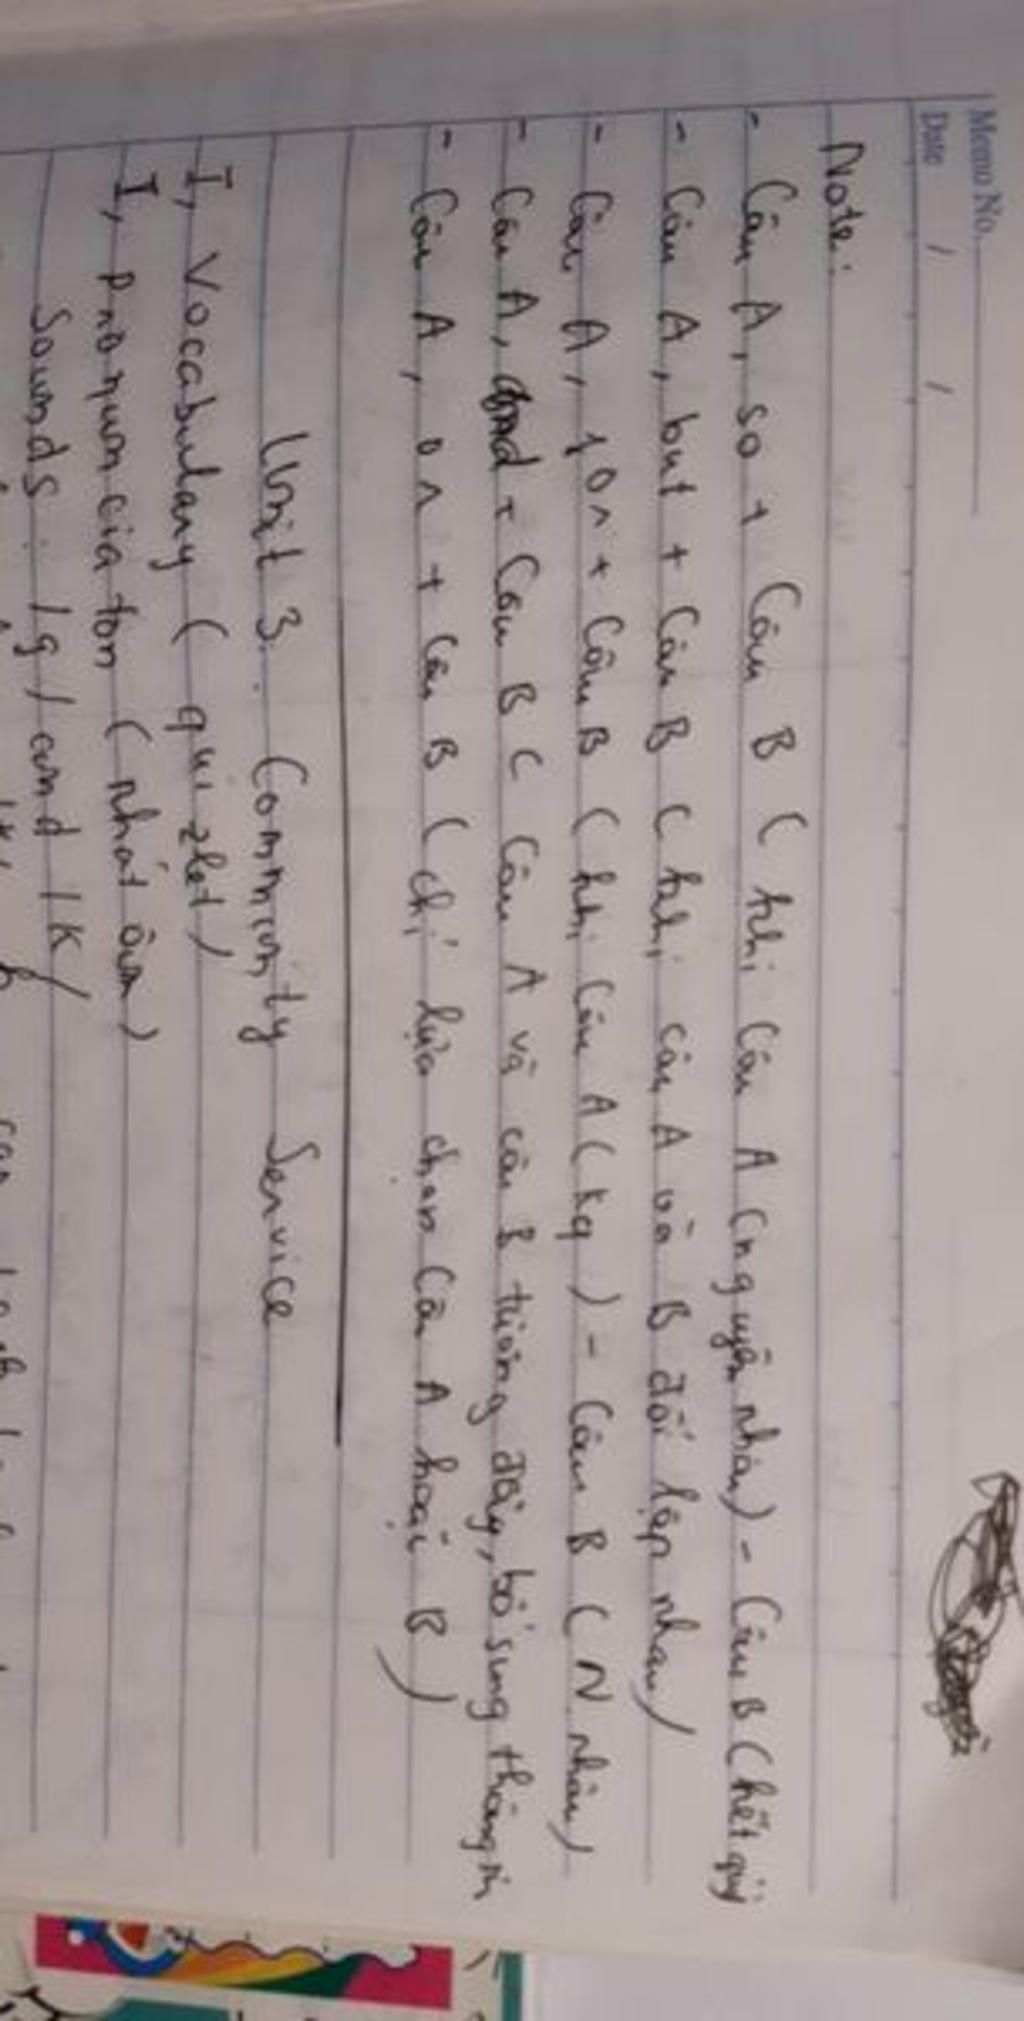 Memo No.
Date / /
Note:
- Câu A, so + Câu B ( khi Câu A (nguyên nhân) - Câu B (kết quả
- Câu A, but + Câu B ( khi câu A và B đối lập nhau)
- Câu A, for + Câu B ( khi Câu A ( kq ) - Câu B ( N. nhân)
- Câu A, and + Câu B ( Câu A và câu B tương đồng, bổ sung thông tin
- Câu A, or + Câu B ( chỉ lựa chọn Câu A hoặc B )
Unit 3. Community Service
I, Vocabulary ( quizlet)
I, pronunciaton ( phát âm)
Sounds: /g/ and /k/